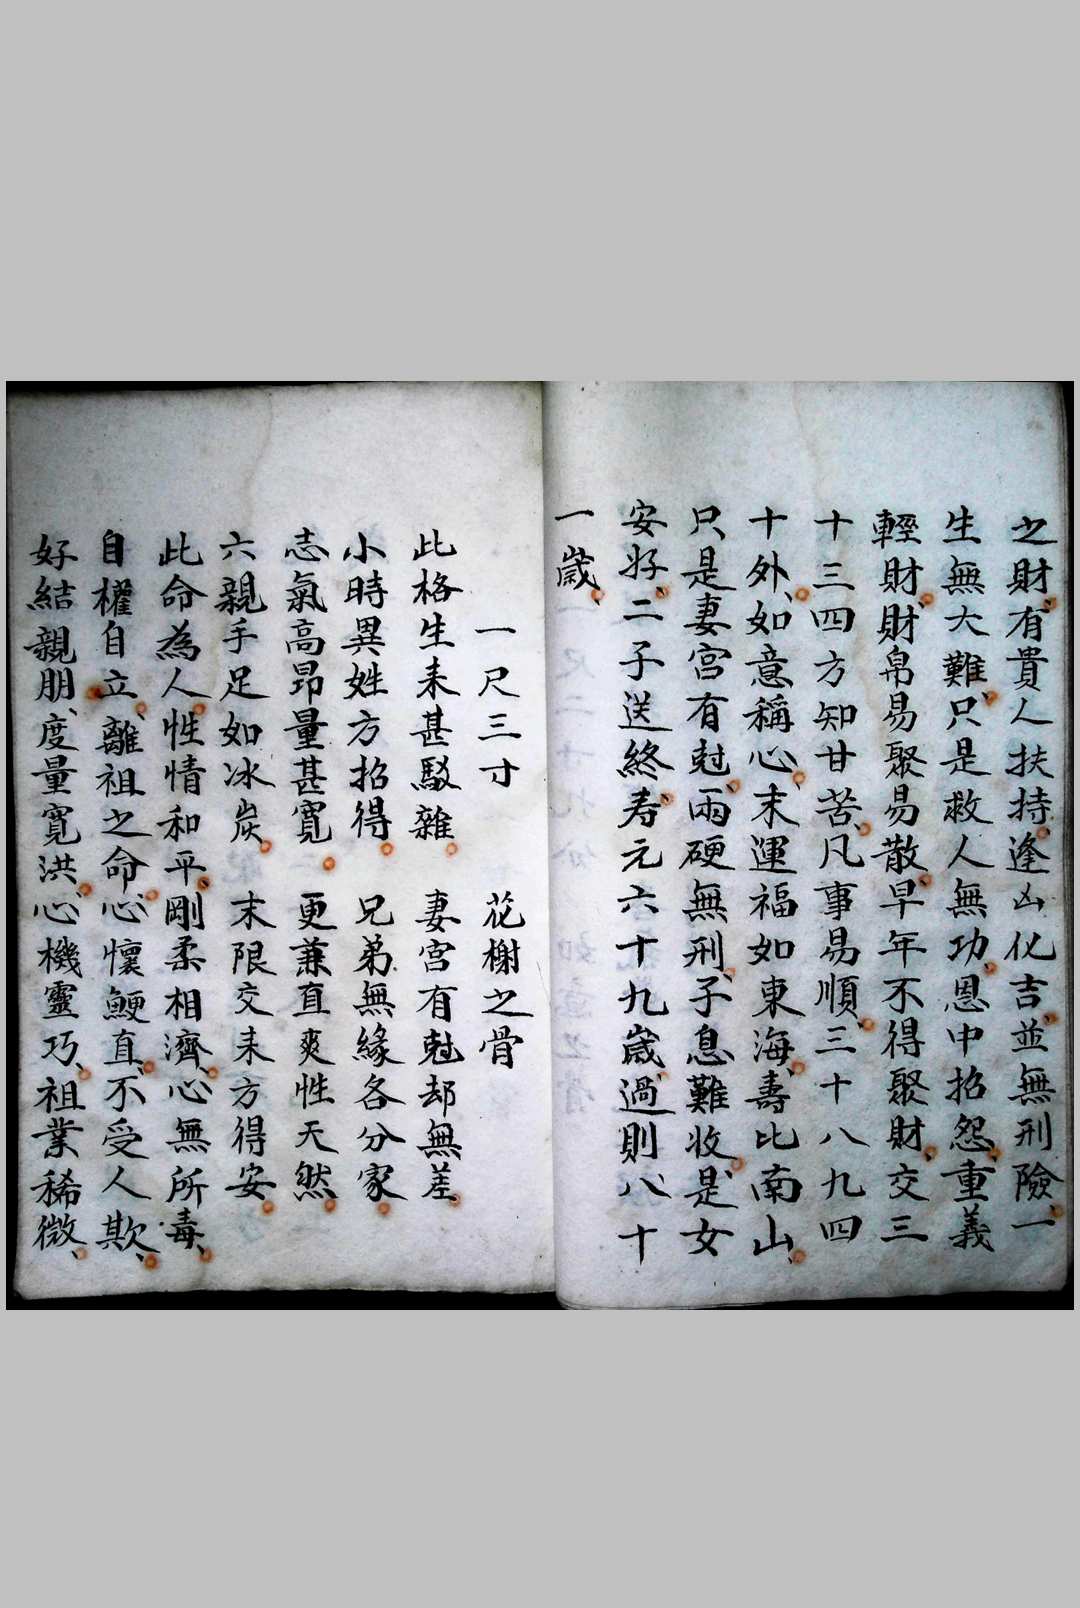 之財、有貴人扶持、逢凶化吉、並無刑險、一
生無大難、只是救人無功、恩中招怨、重義
輕財、財帛易聚易散、早年不得聚財、交三
十三四方知甘苦、凡事易順、三十八九四
十外、如意稱心、末運福如東海、壽比南山、
只是妻宮有尅、兩硬無刑、子息難收、是女
安好、二子送終、寿元六十九歲、過則八十
一歲、
一尺三寸　花榭之骨
此格生来甚駁雜　妻宮有尅却無差
小時異姓方招得　兄弟無緣各分家
志氣高昂量甚寬　更兼直爽性天然
六親手足如冰炭　末限交来方得安
此命為人、性情和平、剛柔相濟、心無所毒、
自權自立、離祖之命、心懷鯁直、不受人欺、
好結親朋、度量寬洪、心機靈巧、祖業稀微、